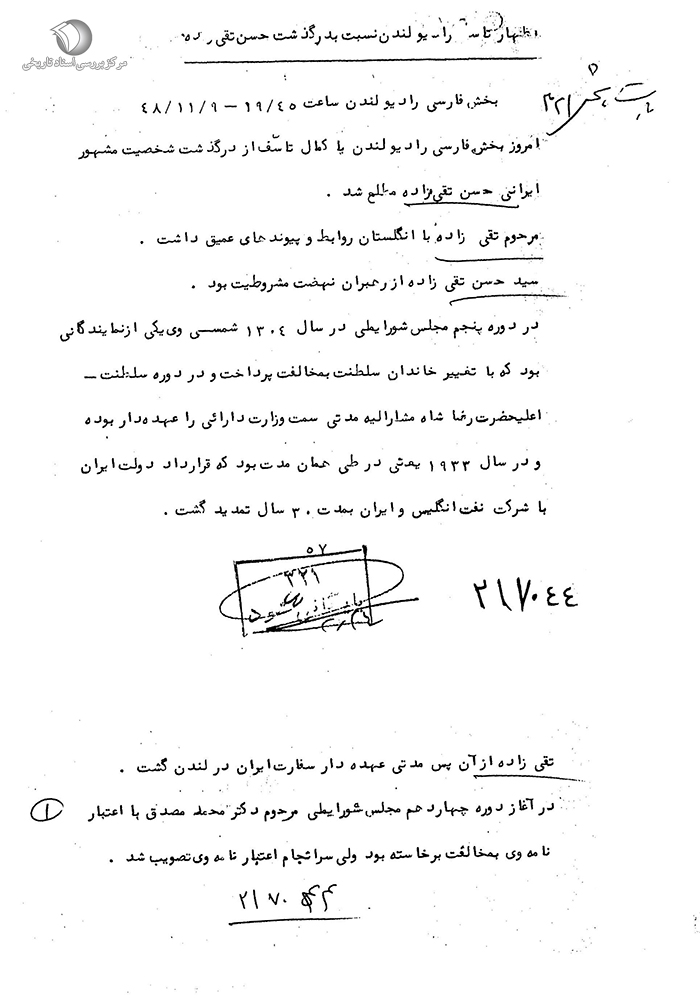 مرکز بررسی اسناد تاریخی
اظهار تاسف رادیو لندن نسبت بدرگذشت حسن تقی زاده
بخش فارسی رادیو لندن ساعت ۱۹/۴۵ – ۴۸/۱۱/۹
امروز بخش فارسی رادیو لندن با کمال تاسف از درگذشت شخصیت مشهور
ایرانی حسن تقی‌زاده مطلع شد .
مرحوم تقی زاده با انگلستان روابط و پیوندهای عمیق داشت .
سید حسن تقی زاده از رهبران نهضت مشروطیت بود .
در دوره پنجم مجلس شورایملی در سال ۱۳۰۴ شمسی وی یکی از نمایندگانی
بود که با تغییر خاندان سلطنت بمخالفت پرداخت و در دوره سلطنت –
اعلیحضرت رضا شاه مشارالیه مدتی سمت وزارت دارائی را عهده‌دار بوده
و در سال ۱۹۳۳ یعنی در طی همان مدت بود که قرارداد دولت ایران
با شرکت نفت انگلیس و ایران بمدت ۳۰ سال تمدید گشت .
۵۷
۳۲۱
۲۱۷۰۴۴
تقی زاده از آن پس مدتی عهده دار سفارت ایران در لندن گشت .
در آغاز دوره چهاردهم مجلس شورایملی مرحوم دکتر محمد مصدق با اعتبار
نامه وی بمخالفت برخاسته بود ولی سرانجام اعتبار نامه وی تصویب شد .
۱
۲۱۷۰۴۴